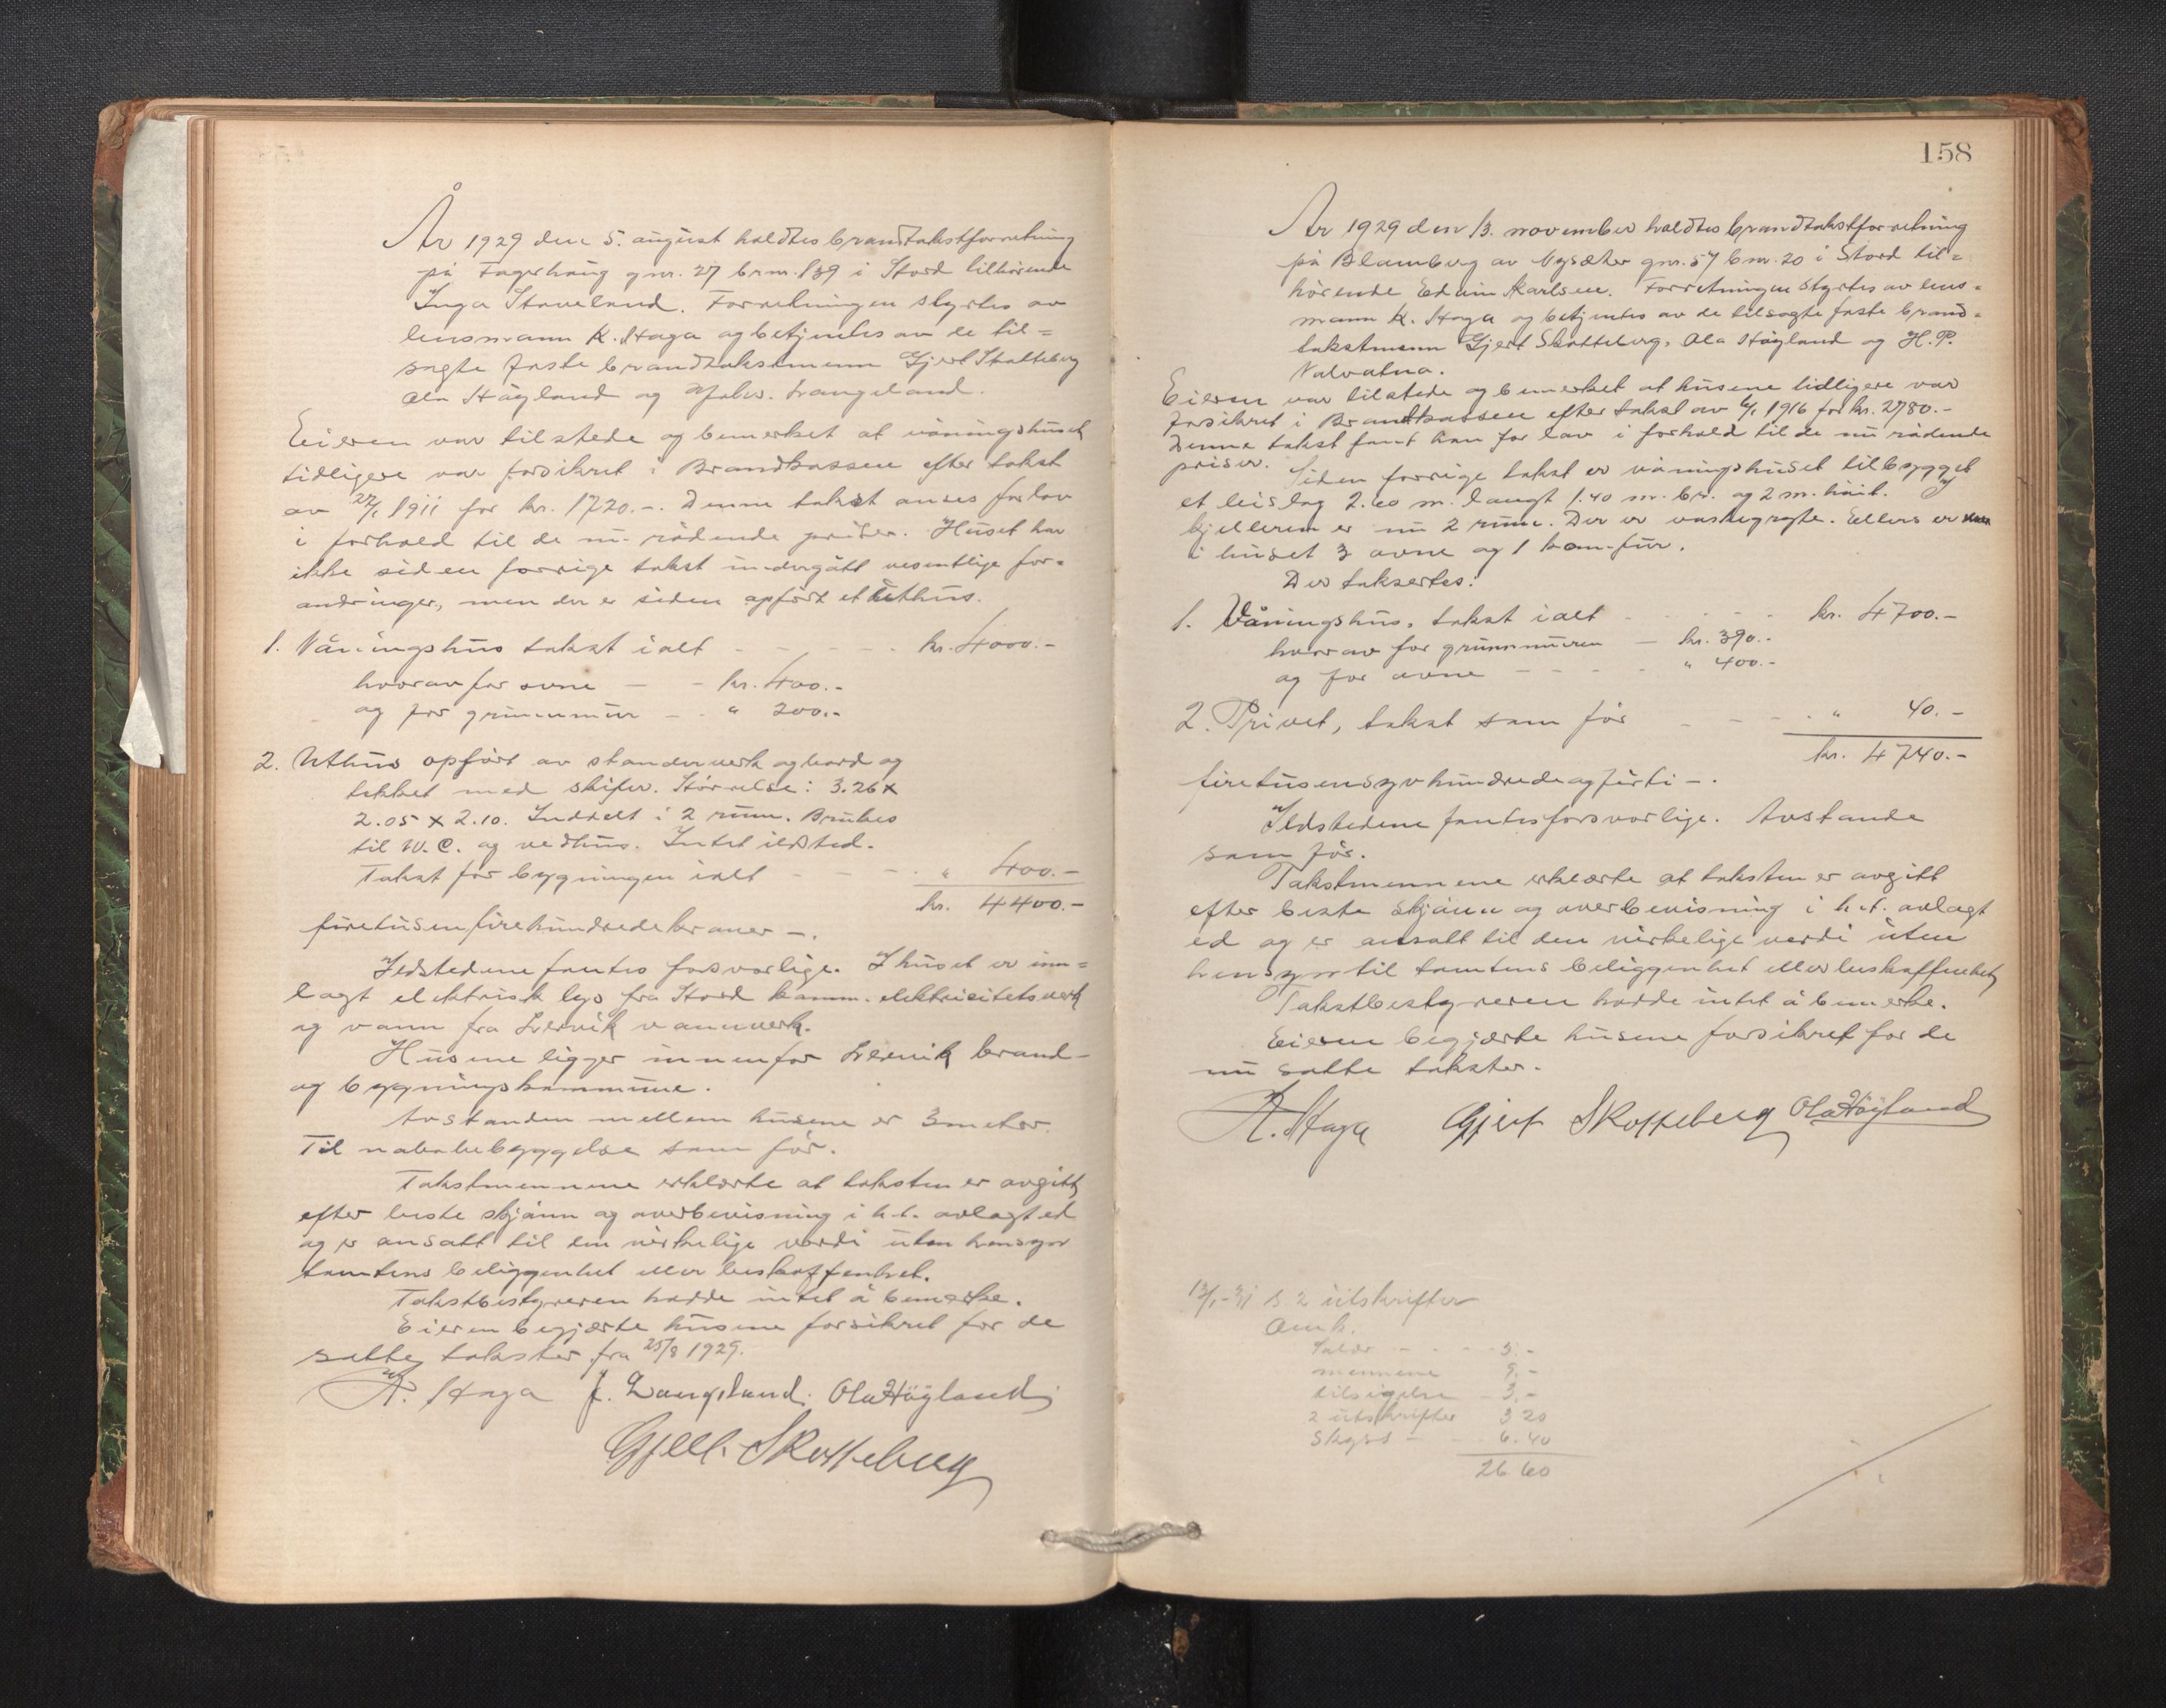 År 1929 den 5. august holdtes brandtakstforretning
på Fagerhaug gnr. 27 brnr. 139 i Stord tilhørende
Inga Staveland. Forretningen styrtes av
lensmann K. Haga og betjentes av de til=
sagte faste brandtakstmenn Gjert Skotteberg
Ola Høyland og Langeland.
Eieren var tilstede og bemerket at våningshuset
tidligere var forsikret i Brandkassen efter takst
av 27/1 1911 for kr. 1720.-. Denne takst anses for lav
i forhold til de nu rådende priser. Huset har
ikke siden forrige takst undergått vesentlige for=
andringer, men der er siden opført et uthus.
1. Våningshus takst ialt - - - - - kr. 4000.-
hvorav for ovne - - kr. 400.-
og for grunnmur - - " 200.-
2. Uthus opført av standerverk og bord og
tekket med skifer. Størrelse: 3.26 x
2.05 x 2.10. Inddelt i 2 rum. Brukes
til W.C. og vedhus. Intet ildsted.
Takst for bygningen ialt - - - - " 400.-
kr. 4400.-
firetusenfirehundredekroner -.
Ildstedene fantes forsvarlige. I huset er inn=
lagt elektrisk lys fra Stord komm. elektricitetsverk
og vann fra Lervik vannverk.
Husene ligger innenfor Lervik brand-
og bygningskommune.
Avstanden mellem husene er 3 meter.
Til nabobebyggelse som før.
Takstmennene erklærte at taksten er avgitt
efter beste skjønn og overbevisning i h.t. avlagt ed
og er ansatt til den virkelige verdi uten hensyn
tomtens beliggenhet eller beskaffenhet.
Takstbestyreren hadde intet å bemerke.
Eieren begjærte husene forsikret for de
satte takster fra 25/8 1929.
K. Haga J. Langeland. Ola Høyland
Gjert Skotteberg
158
År 1929 den 13. november holdtes brandtakstforretning
på Blomberg av Nysæter gnr. 57 bnr. 20 i Stord til=
hørende Edvin Karlsen. Forretningen styrtes av lens=
mann K. Haga og betjentes av de tilsagte faste brand=
takstmenn Gjert Skotteberg, Ola Høyland og H. P.
Valvatna.
Eieren var tilstede og bemerket at husene tidligere var
forsikret i Brandkassen efter takst av 6/1 1916 for kr. 2780.-
Denne takst fant han for lav i forhold til de nu rådende
priser. Siden forrige takst er våningshuset tilbygget
et bislag 2.60 m. langt 1.40 m. br. og 2 m. høit. I
kjelleren er nu 2 rum. Der er vaskegryte. Ellers er
i huset 3 ovne og 1 komfur.
Der taksertes:
1. Våningshus, takst ialt - - - - kr. 4700.-
hvorav for grunnmuren - kr. 390.-
og for ovne - - - - " 400.-
2. Privet, takst som før - - - - " 40.-
kr. 4740.-
firetusensyvhundredeogførti -.
Ildstedene fantes forsvarlige. Avstande
som før.
Takstmennene erklærte at taksten er avgitt
efter beste skjønn og overbevisning i h.t. avlagt
ed og er ansatt til den virkelige verdi uten
hensyn til tomtens beliggenhet eller beskaffenhet
Takstbestyreren hadde intet å bemerke.
Eieren begjærte husene forsikret for de
nu satte takster.
K. Haga Gjert Skotteberg Ola Høyland
2 utskrifter
Salær - - - - 5.-
mennene 9.-
tilsigelse - 3.-
2 utskrifter 3 20
Skyss - - 6.40
26 60